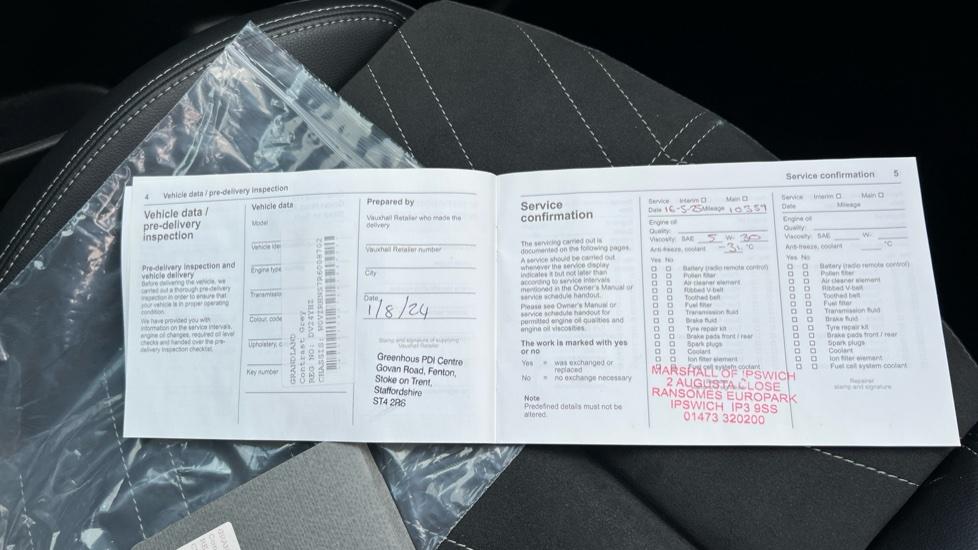 4 Vehicle data / pre-delivery inspection
Vehicle data /
pre-delivery
inspection
Pre-delivery inspection and
vehicle delivery
Before delivering the vehicle, we
carried out a thorough pre-delivery
inspection in order to ensure that
your vehicle is in proper operating
condition.
We have provided you with
information on the service intervals,
engine oil changes, required oil level
checks and handed over the pre-
delivery inspection checklist.
Vehicle data
Model
Vehicle ide
Engine type
Transmissio
Colour, code
Upholstery, c
Key number
GRANDLAND
Contrast Grey
REG NO:
CHASSIS:
Prepared by
Vauxhall Retailer who made the
delivery
Vauxhall Retailer number
City
Date
1/8/24
Stamp and signature of supplying
Vauxhall Retailer
Greenhous PDI Centre
Govan Road, Fenton,
Stoke on Trent,
Staffordshire
ST4 2RS
Service confirmation 5
Service
confirmation
The servicing carried out is
documented on the following pages.
A service should be carried out
whenever the service display
indicates it but not later than
according to service intervals
mentioned in the Owner's Manual or
service schedule handout.
Please see Owner's Manual or
service schedule handout for
permitted engine oil qualities and
engine oil viscosities.
The work is marked with yes
or no
Yes = was exchanged or
replaced
No = no exchange necessary
Note
Predefined details must not be
altered.
Service Interim Main
Date 16-5-25 Mileage 10359
Engine oil
Quality:
Viscosity: SAE 5 W- 30
Anti-freeze, coolant °C
Yes No
Battery (radio remote control)
Pollen filter
Air cleaner element
Ribbed V-belt
Toothed belt
Fuel filter
Transmission fluid
Brake fluid
Tyre repair kit
Brake pads front / rear
Spark plugs
Coolant
Ion filter element
Fuel cell system coolant
MARSHALL OF IPSWICH
2 AUGUSTA CLOSE
RANSOMES EUROPARK
IPSWICH IP3 9SS
01473 320200
Service Interim Main
Date Mileage
Engine oil
Quality:
Viscosity: SAE W-
Anti-freeze, coolant °C
Yes No
Battery (radio remote control)
Pollen filter
Air cleaner element
Ribbed V-belt
Toothed belt
Fuel filter
Transmission fluid
Brake fluid
Tyre repair kit
Brake pads front / rear
Spark plugs
Coolant
Ion filter element
Fuel cell system coolant
Repairer
stamp and signature